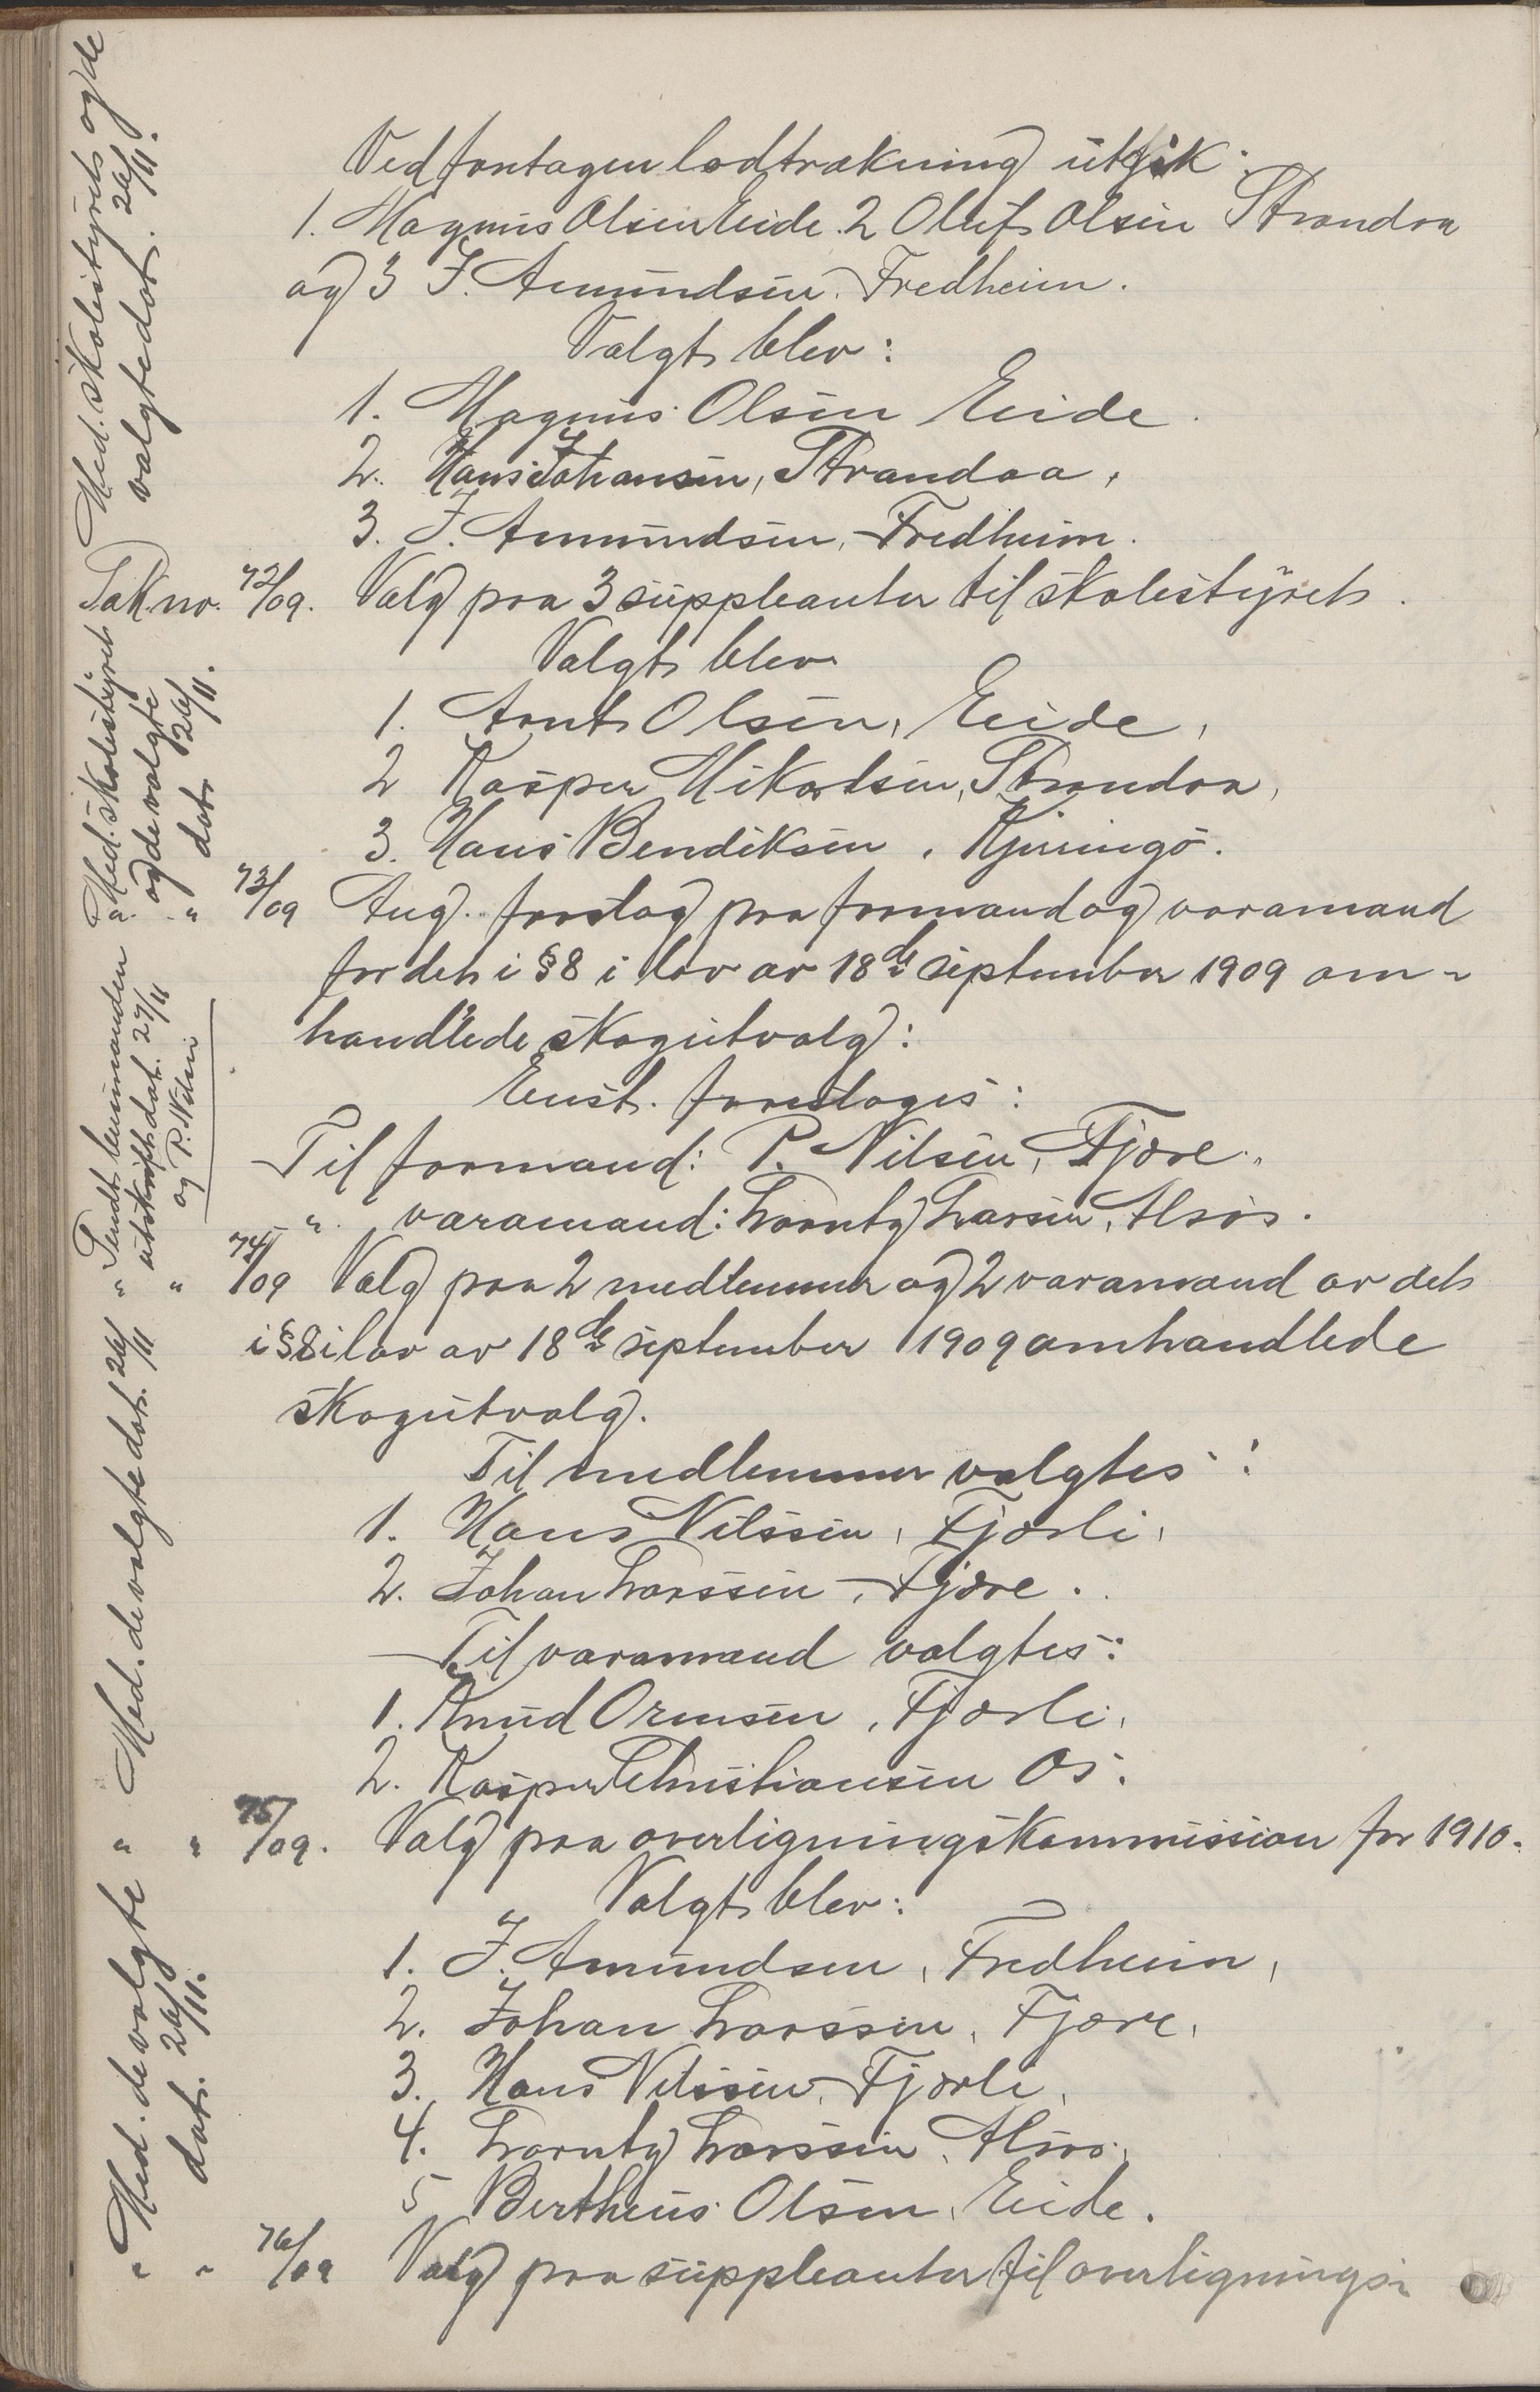 Ved fortagen lodtrækning utgik:
1. Magnus Olsen Eide. 2 Oluf Olsen Strandaa
og 3 J. Amundsen. Fredheim.
Valgt blev:
1. Magnus Olsen Eide.
2. Hans Johansen, Strandaa,
3. J. Amundsen, Fredheim.
Med. skolestyret og de
valgte dat. 26/11.
Sak no. 72/09. Valg paa 3 suppleanter til skolestyret.
Valgt blev
1. Arnt Olsen, Eide,
2 Kasper Mikalsen, Strandaa,
3. Hans Bendiksen, Kjerringø.
Med. skolestyret
og de valgte
dat. 26/11.
" " 73/09 Ang. forslag paa formand og varamand
for det i §8 i lov av 18de september 1909 om-
handlede skogutvalg:
Enst. foreslages:
Til formand: P. Nilsen, Fjære.
" varamand: Lorentz Larsen, Alsos.
Sendt lensmanden
utskrift dat. 27/11
og P. Nilsen
" " 74/09 Valg paa 2 medlemmer og 2 varamænd av det
i §8 i lov av 18de september 1909 omhandlede
skogutvalg.
Til medlemmer valgtes:
1. Hans Nilssen, Fjærli,
2. Johan Larssen, Fjære.
Til varamænd valgtes:
1. Knud Ormsen, Fjærli,
2. Kasper Christiansen Os.
Med. de valgte dat. 26/11
" " 75/09. Valg paa overligningskommission for 1910.
Valgt blev:
1. J. Amundsen, Fredheim,
2. Johan Larssen, Fjære,
3. Hans Nilssen, Fjærli,
4. Lorentz Larssen, Alsos,
5 Bertheus Olsen, Eide.
Med. de valgte
dat. 26/11.
" " 76/09 Valg paa suppleanter til overlignings-